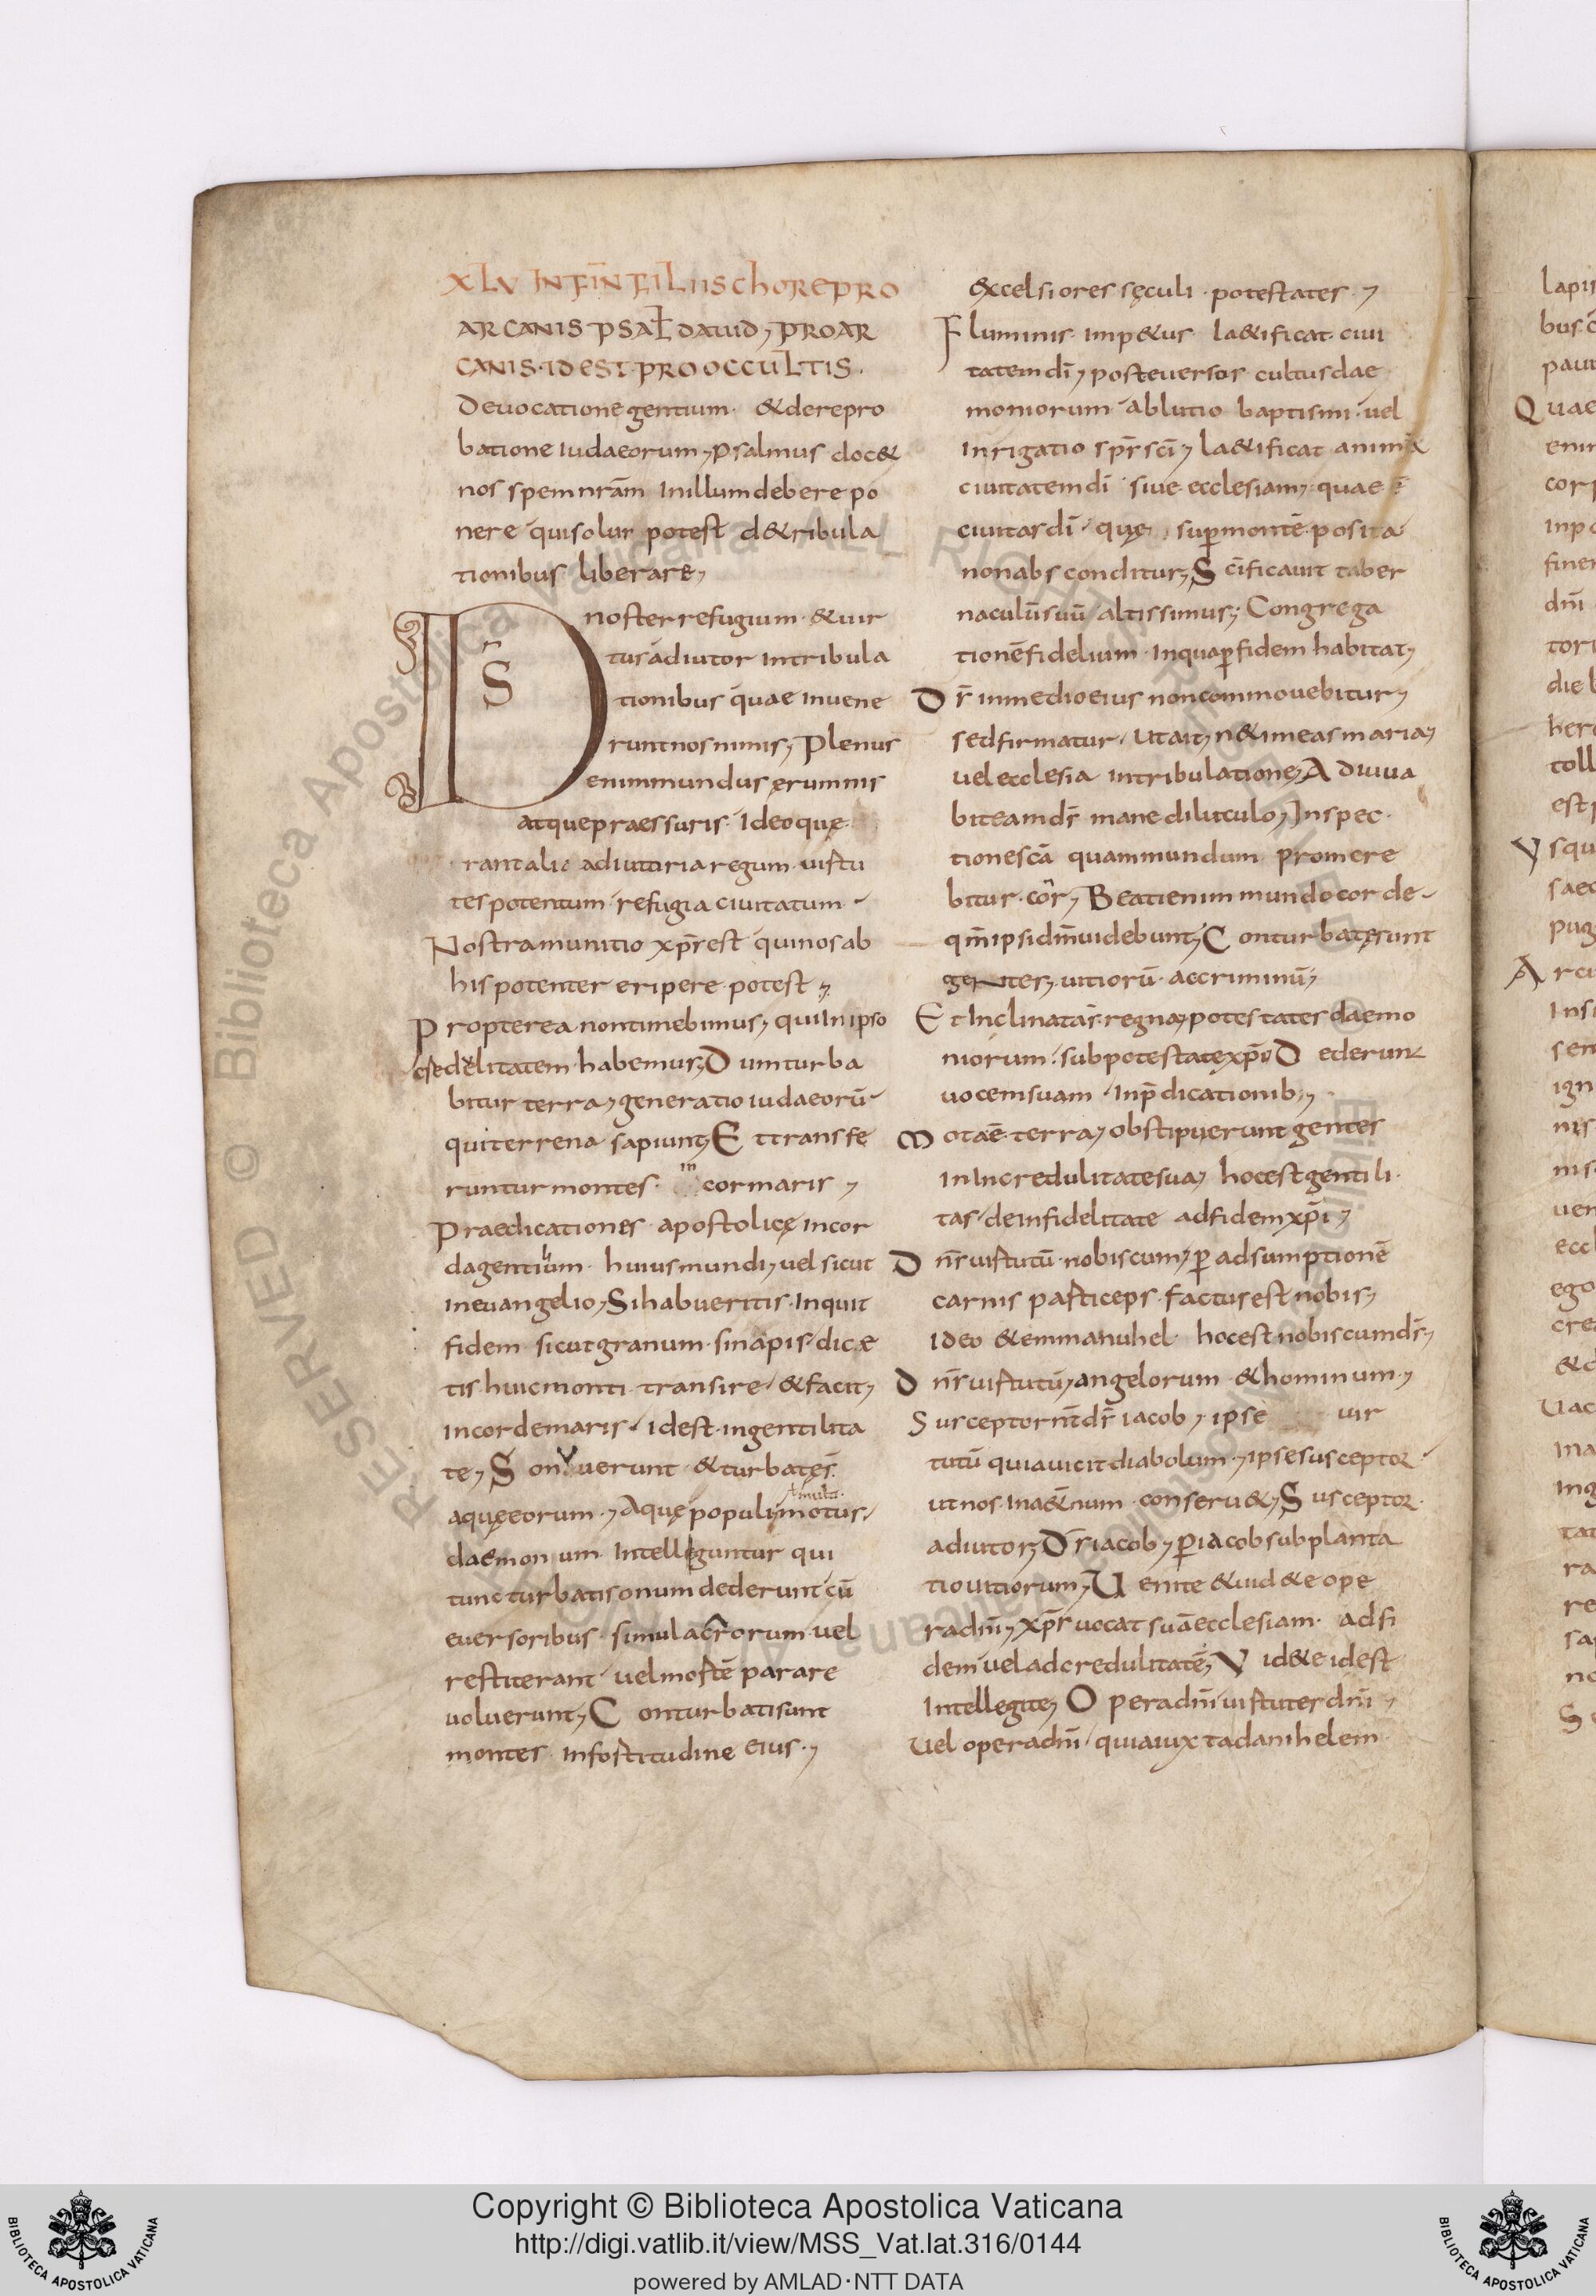 XLV IN FIN FILIIS CHORE PRO
ARCANIS PSAL̄ DAUID; PRO AR
CANIS. ID EST PRO OCCULTIS.
De uocatione gentium. & de repro
batione iudaeorum; Psalmus doc&
nos spem nr̄am in illum debere po
nere qui solus potest de tribula
tionibus liberare;
DS̄ noster refugium. & uir
tus adiutor in tribula
tionibus quae inuene
runt nos nimis; Plenus
enim mundus erumnis
atque praessuris. Ideo quę
rant alii adiutoria regum uirtu
tes potentum refugia ciuitatum
Nostra munitio xp̄s est qui nos ab
his potenter eripere potest;
Propterea non timebimus; qui in ipso
fidelitatem habemus; Dum turba
bitur terra; generatio iudaeorū
qui terrena sapiunt; Et transfe
runtur montes in cor maris;
Praedicationes apostolicę in cor
da gentium huius mundi; uel sicut
in euangelio; Si habueritis. Inquit
fidem sicut granum sinapis dice
tis huic monti transire & facit;
in corde maris. id est in gentilita
te; Sonuerunt & turbatę s̄
aquę eorum; Aquę populi; motus
daemonium intelleguntur qui
tunc turbati sonum dederunt cū
euersoribus simulacrorum uel
restiterant uel mortē parare
uoluerunt; Conturbati sunt
montes in fortitudine eius;
excelsiores sęculi potestates;
Fluminis imp&us la&ificat ciui
tatem dī; post euersos cultus dae
moniorum ablutio baptismi uel
inrigatio sp̄s sc̄i; la&ificat animā
ciuitatem dī siue ecclesiam; quae ē
ciuitas dī quę supra montē posita
non absconditur; Sc̄ificauit taber
naculū suū altissimus; Congrega
tionē fidelium in qua p̄ fidem habitat;
Ds̄ in medio eius non commouebitur;
sed firmatur. Ut ait; n & imeas maria;
uel ecclesia in tribulatione; Adiuua
bit eam ds̄ mane diluculo; Inspec
tione sc̄a quam mundum promere
bitur cor; Beati enim mundo cor de
qm̄ ipsi dm̄ uidebunt; Conturbatę sunt
gentes; uitiorū ac criminū;
Et inclinata s̄ regna; potestates daemo
niorum sub potestate xp̄i; Dederunt
uocem suam. In p̄dicationib;
Mota ē terra; obstipuerunt gentes
in incredulitate sua; hoc est gentili
tas de infidelitate ad fidem xp̄i;
Dn̄s uirtutū nobiscum; p̄ adsumptionē
carnis particeps factus est nobis;
Ideo & emmanuhel hoc est nobiscum ds̄;
Dn̄s uirtutū; angelorum & hominum;
Susceptor nt̄ ds̄ iacob; ipse uir
tutū quia uicit diabolum; ipse susceptor
ut nos in aet̄num conseru&; Susceptor
adiutor; Ds̄ iacob; p̄ iacob subplanta
tio uitiorum; Uenite & uid&e ope
ra dn̄i; xp̄s uocat suā ecclesiam ad fi
dem uel ad credulitatē; Vid&e id est
intellegite; Opera dn̄i uirtutes dn̄i
Uel opera dn̄i quia iuxta danihelem
Copyright © Biblioteca Apostolica Vaticana
http://digi.vatlib.it/view/MSS_Vat.lat.316/0144
powered by AMLAD·NTT DATA